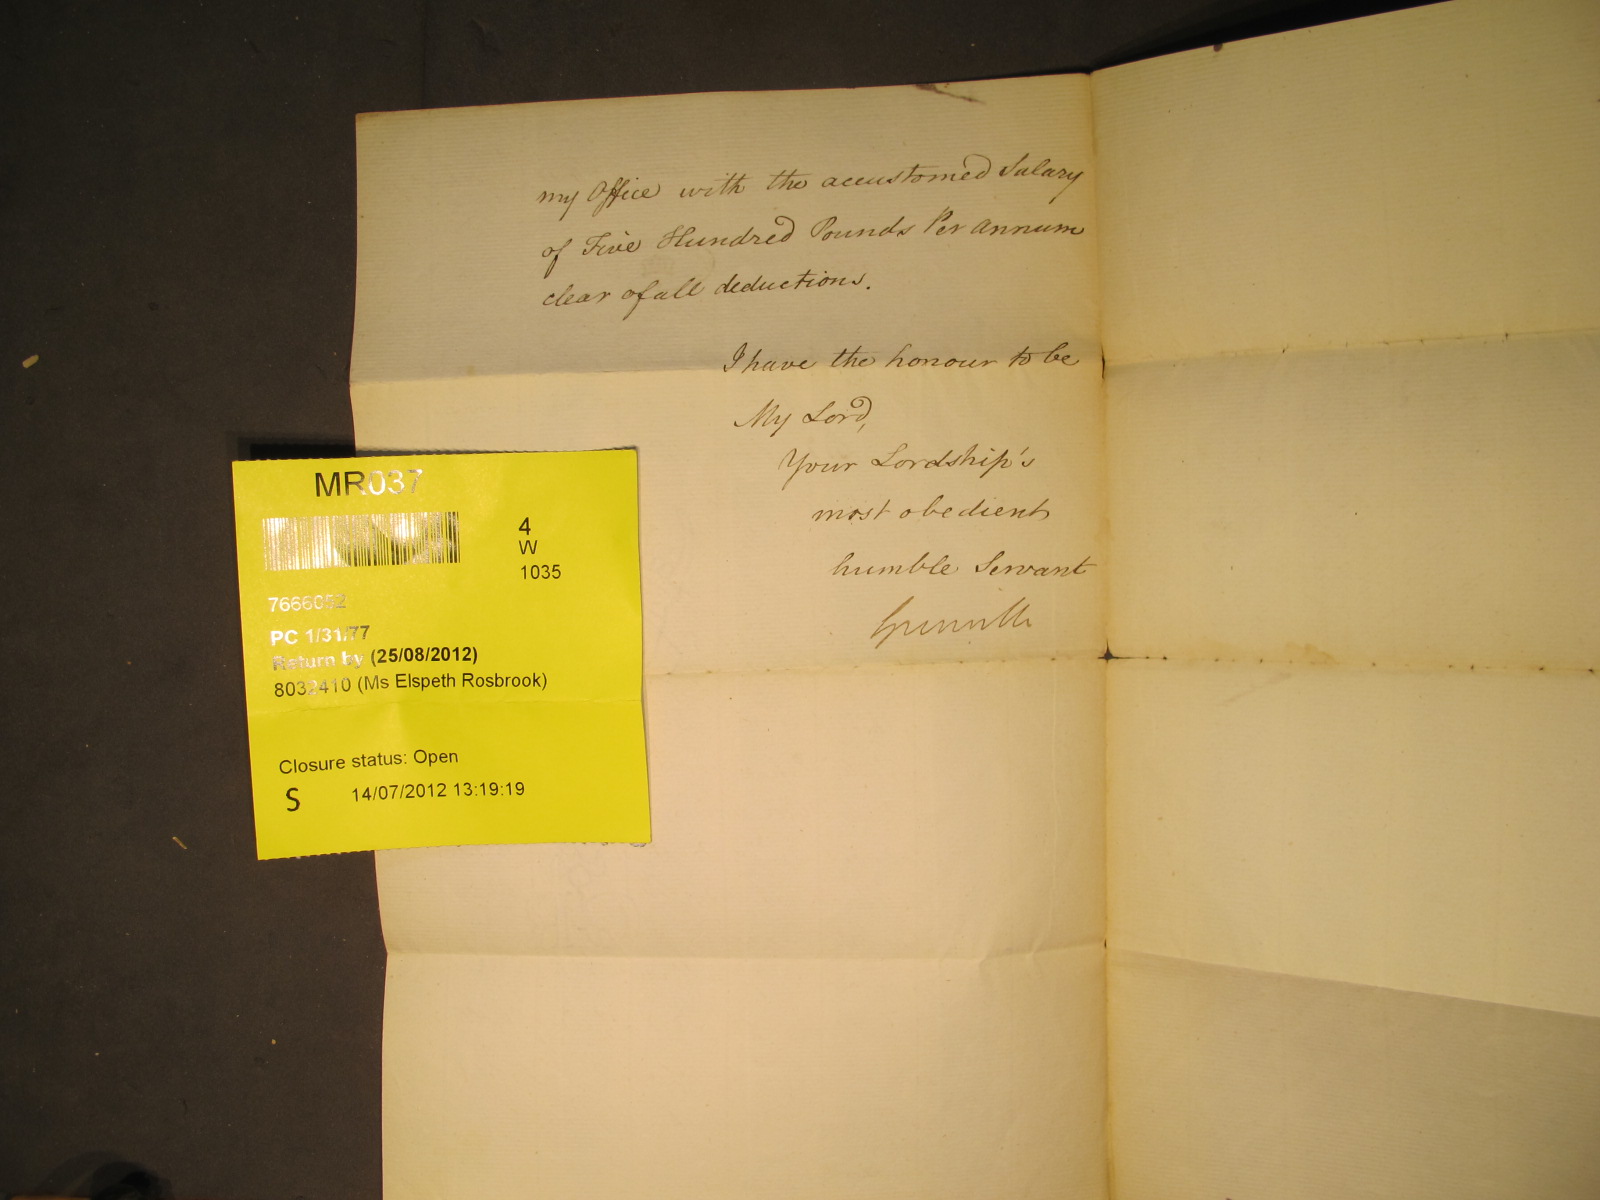 my Office with the accustomed Salary
of Five Hundred Pounds Per Annum
clear of all deductions.
I have the honour to be
My Lord,
Your Lordship's
most obedient
humble Servant
Grenville
MR037
4
W
1035
7666052
PC 1/31/77
Return by (25/08/2012)
8032410 (Ms Elspeth Rosbrook)
Closure status: Open
S 14/07/2012 13:19:19